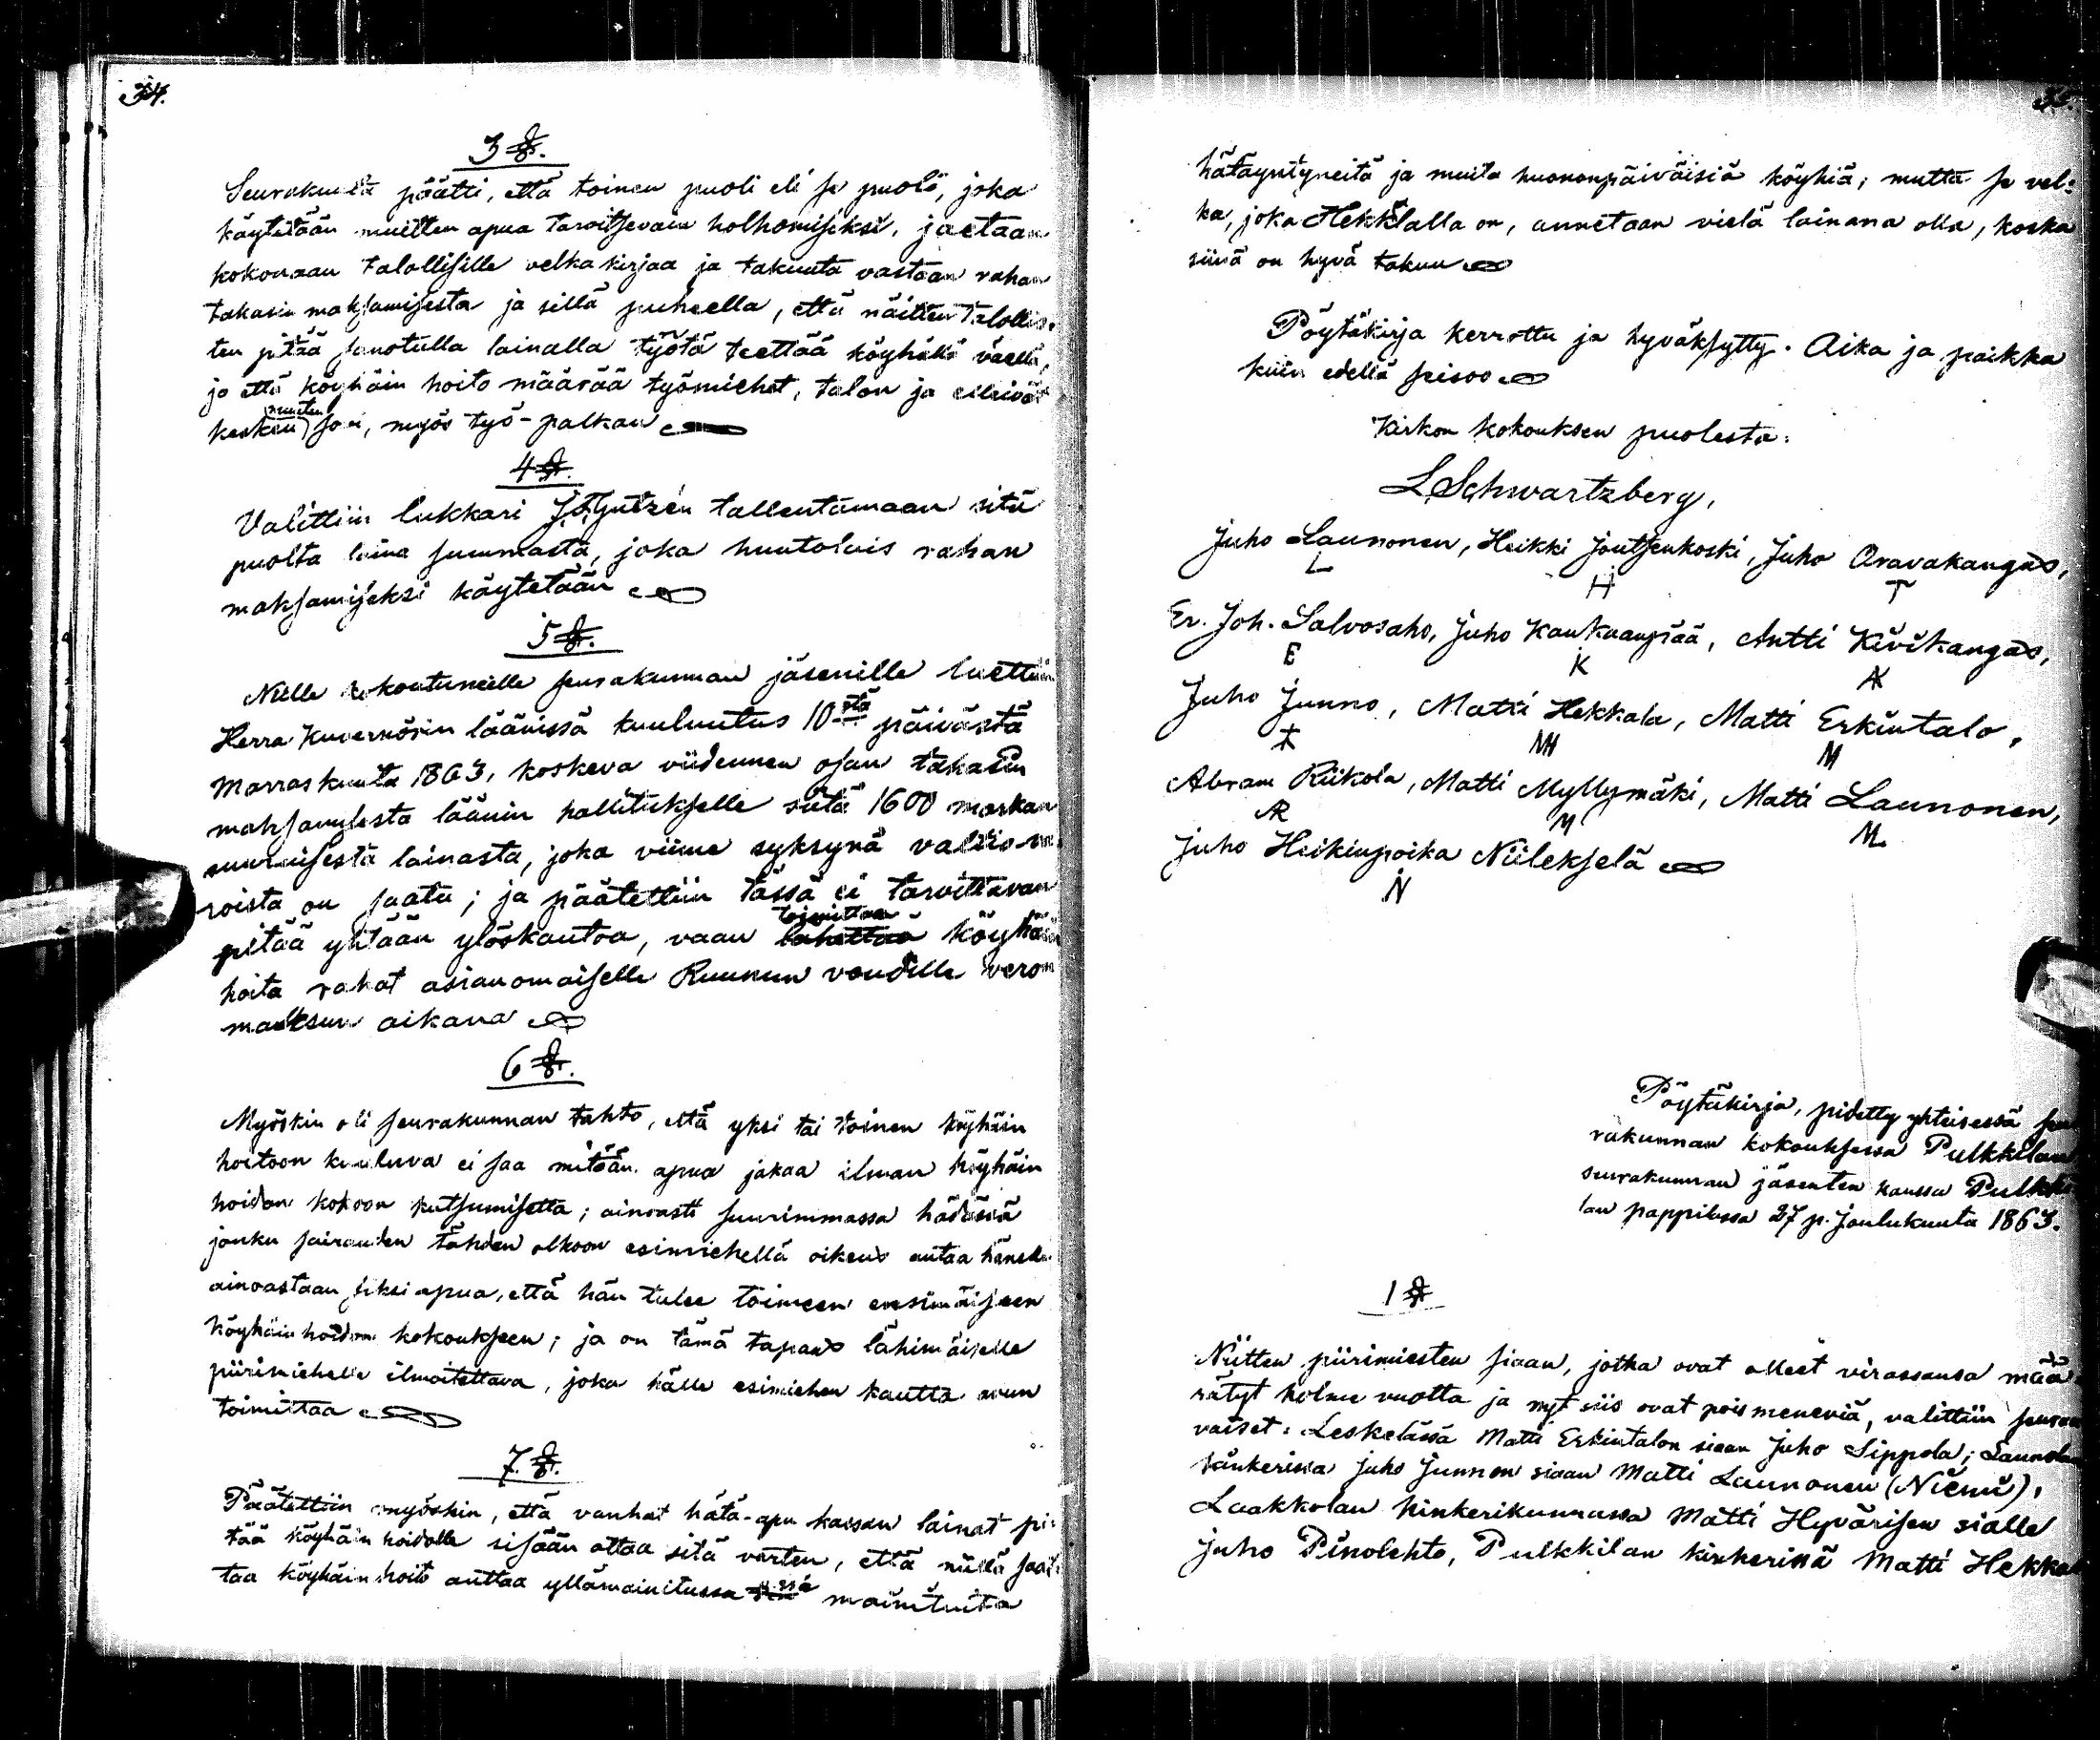 34.
3 §.
Seurakunta päätti, että toinen puoli eli se puoli, joka
käytetään muitten apua tarvitsevain holhomiseksi, jaetaan
kokonaan talollisille velkakirjaa ja takuuta vastaan rahan
takasin maksamisesta ja sillä puheella, että näitten talollis-
ten pitää sanotulla lainalla työtä teettää köyhällä väellä,
ja että köyhäin hoito määrää työmiehet, talon ja elleivät
keskenänsä muuten sovi, myös työ-palkan
4 §.
Valittiin lukkari tallentamaan sitä
puolta laina summasta, joka huutolais rahan
maksamiseksi käytetään
5 §.
Niille kokontuneille seurakunnan jäsenille luettiin
Herra Kuvernörin läänissä kuulutus 10stä päivästä
Marraskuuta 1863, koskeva viidennen osan takasin
maksamisesta läänin hallitukselle siitä 1600 markan
suuruisesta lainasta, joka viime syksynä valtio-va-
roista on saatu; ja päätettiin tässä ei tarvittavan
pitää yhtään ylöskantoa, vaan lähettää toimittaa köyhäin
hoito rahat asianomaiselle Ruunun voudille veron
maaksun aikana
6 §.
Myöskin oli seurakunnan tahto, että yksi tai toinen köyhäin
hoitoon kuuluva ei saa mitään apua jakaa ilman köyhäin
hoidon kokoon kutsumisetta; ainoasti suurimmassa hädässä
jonku sairauden tähden olkoon esimiehellä oikeus antaa hänelle
ainoastaan siksi apua, että hän tulee toimeen ensimäiseen
köyhäin hoidon kokoukseen; ja on tämä tapaus lähimäiselle
piirimiehelle ilmoitettava, joka hälle esimiehen kautta avun
toimittaa
7 §.
Päätettiin myöskin, että vanhat hätä-apu kassan lainat pi-
tää köyhäin hoidolle sisään ottaa sitä varten, että niillä saat-
taa köyhäin hoito auttaa yllämainitussa §:ssä mainituita
hätäyntyneitä ja muita huononpäiväisiä köyhiä; mutta se vel-
ka, joka Hekkalalla on, annetaan vielä lainana olla, koska
siinä on hyvä takuu
Pöytäkirja kerrottu ja hyväksytty. Aika ja paikka
kuin edellä seisoo
Kirkon kokouksen puolesta:
L Schwartzberg,
Juho Launonen, Heikki Joutsenkoski, Juho Oravakangas,
L H T
Er. Joh. Salvosaho, Juho Kankaanpää, Antti Kivikangas,
E K AK
Juho Junno, Matti Hekkala, Matti Erkintalo,
MH M
Abram Riikola, Matti Myllymäki, Matti Launonen,
AR M M.
Juho Heikinpoika Niilekselä
N
Pöytäkirja, pidetty yhteisessä seu
rakunnan kokouksessa Pulkkilan
seurakunnan jäsenten kanssa Pulkki
lan pappilassa 27 p. Joulukuuta 1863.
1 §
Niitten piirimiesten siaan, jotka ovat olleet virassansa mää-
rätyt kolme vuotta ja nyt siis ovat poismeneviä, valittiin seuraa
vaiset: Leskelässä Matti Erkintalon siaan Juho Sippola; Launolan
kinkerissä Juho Junnon siaan Matti Launonen (Niemi),
Laakkolan kinkerikunnassa Matti Hyvärisen sialle
Juho Pinolehto, Pulkkilan kinkerissä Matti Hekkal